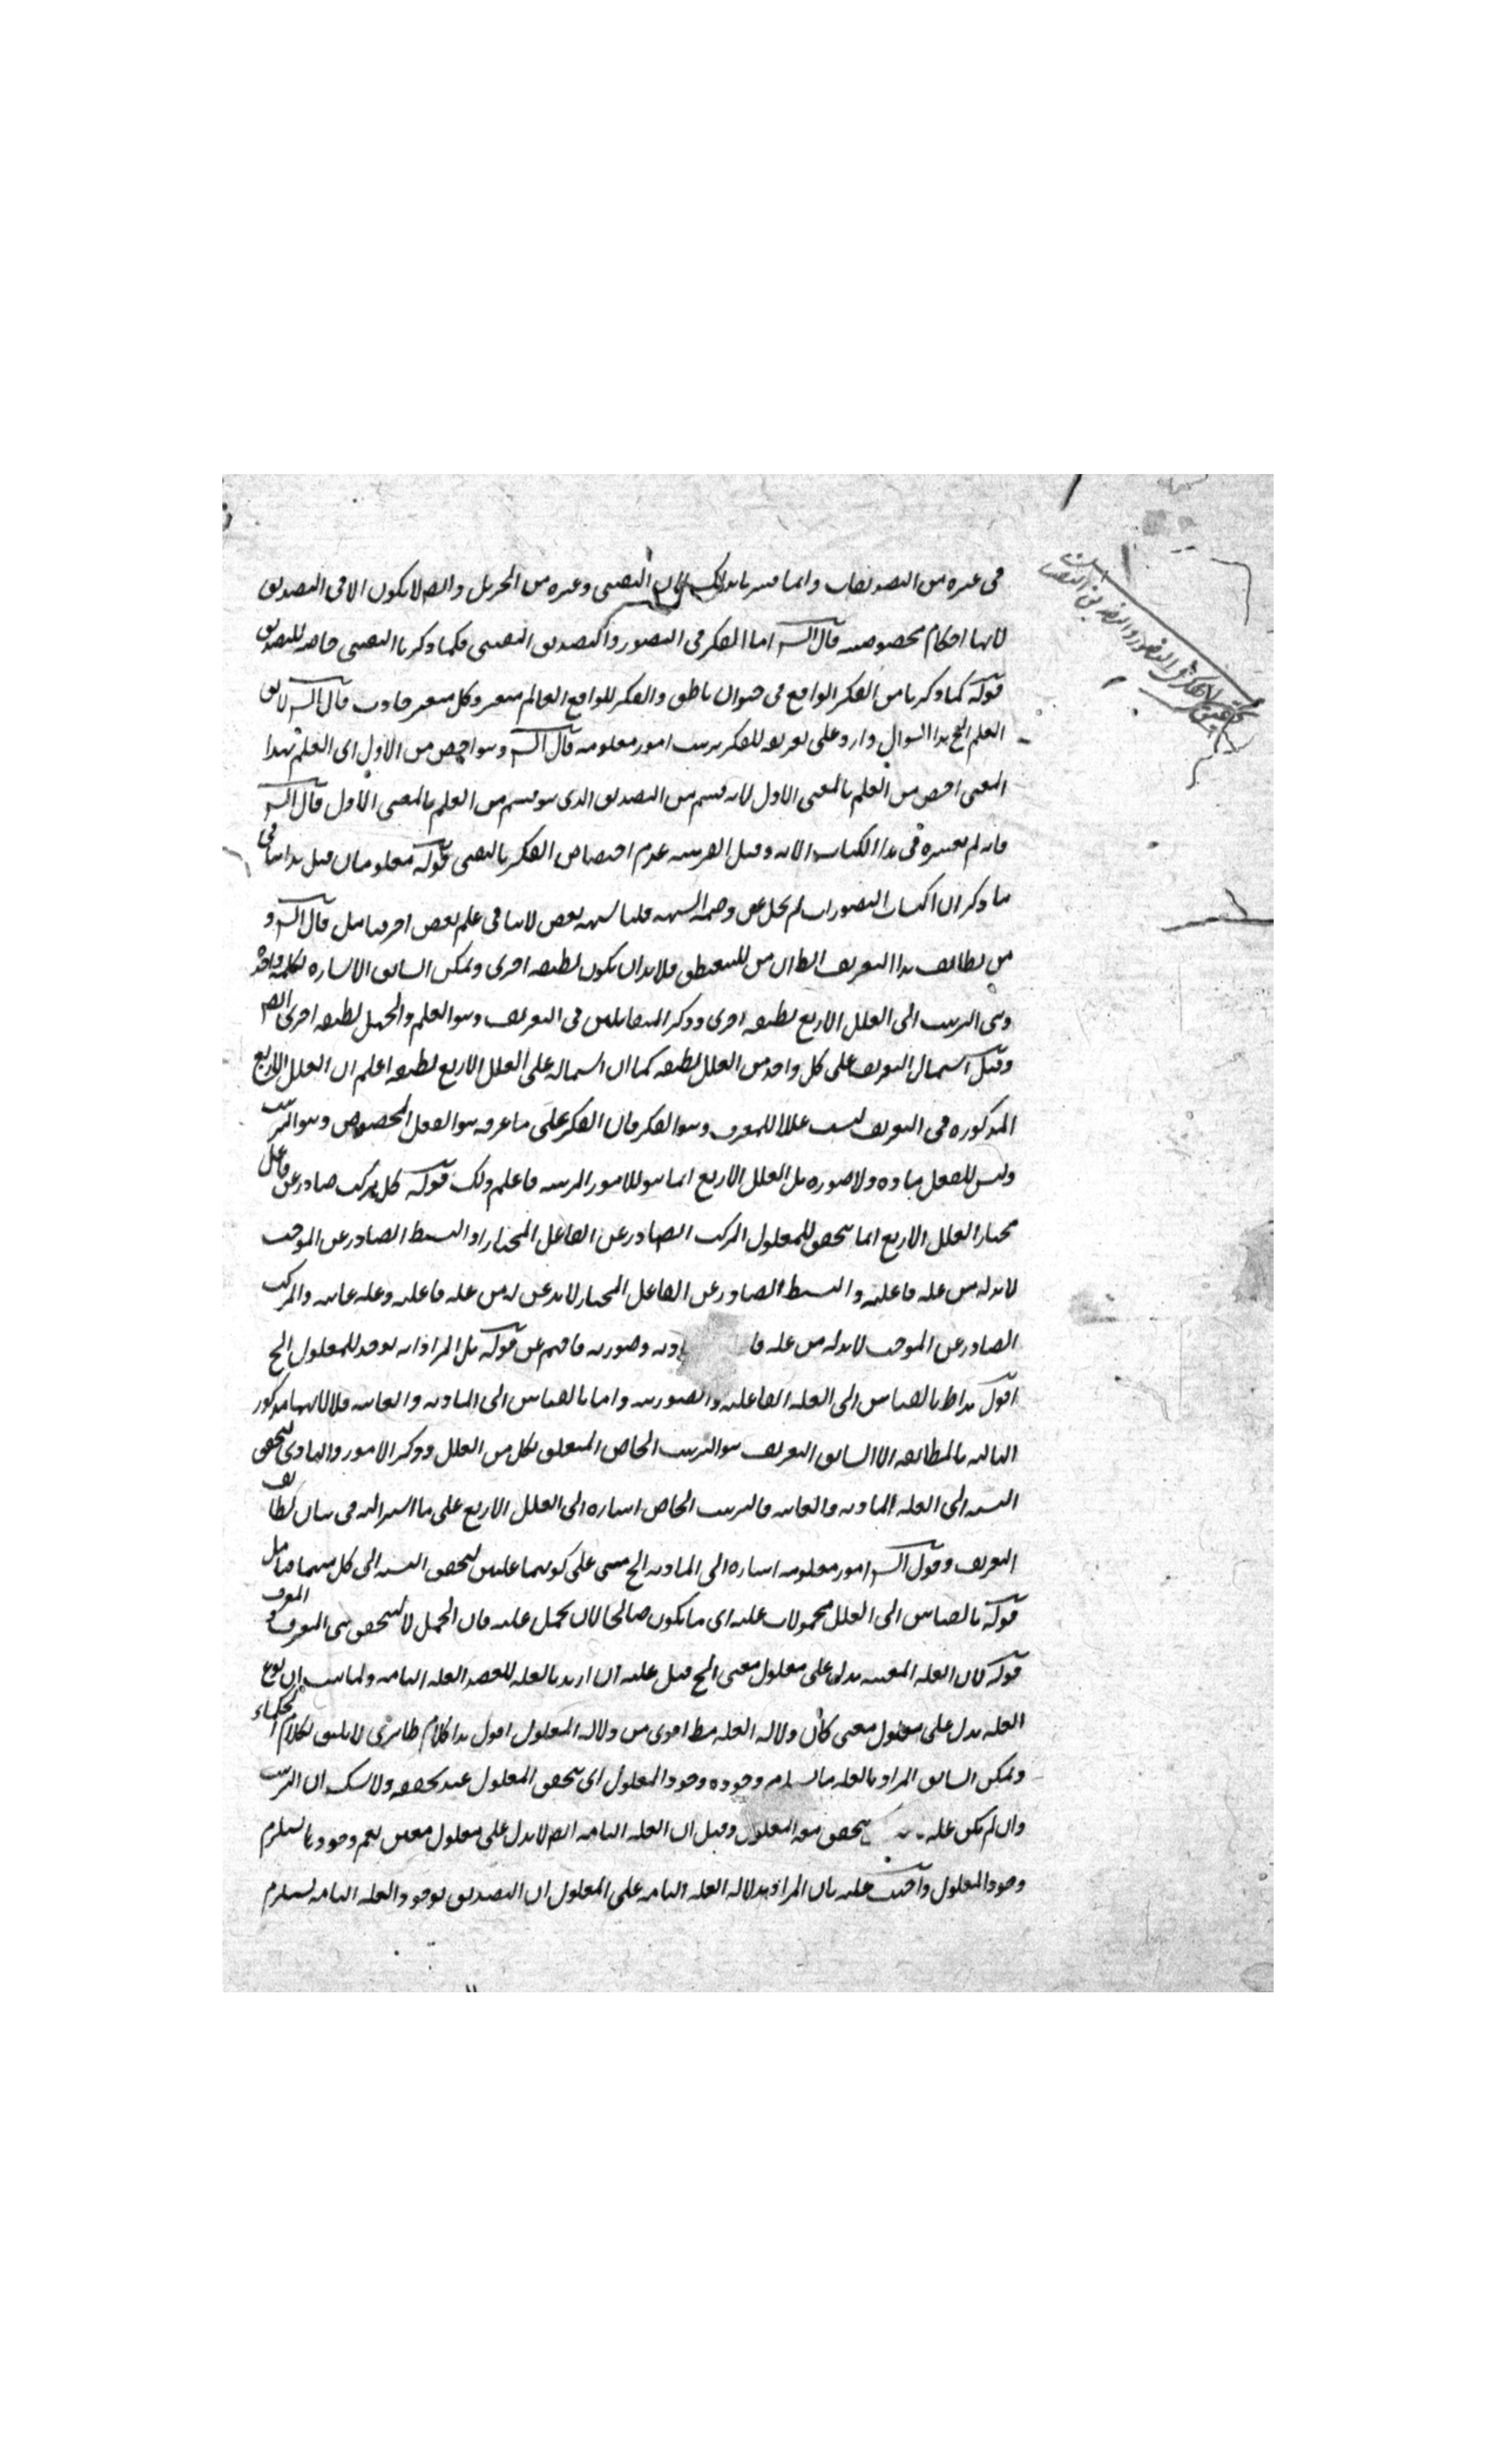 في غيره من التصديقات وانما فسرنا بذلك لان اليقيني وغيره من الجزئيات والظن لا يكون الا في التصديق
لانها احكام مخصوصة قال الش اما الفكر في التصور والتصديق اليقيني فكما ذكرنا اليقيني خاصة للتصديق
قوله كما ذكرنا من الفكر الواقع في حيوان ناطق والفكر الواقع العالم متغير وكل متغير حادث قال الش لا يق
العلم الخ هذا السوال وارد على تعريفه للفكر بترتيب امور معلومة قال الش وهو اخص من الاول اى العلم بهذا
المعنى اخص من العلم بالمعنى الاول لانه قسم من التصديق الذى هو قسم من العلم بالمعنى الاول قال الش
فانه لم يفسره في هذا الكتاب الا به وقيل القرينة عدم اختصاص الفكر باليقيني قوله معلومان قيل هذا ينافي
ما ذكر ان اكتساب التصورات لم يخل عن وصمة الشبهة قلنا شبهة بعض لا ينافي علم بعض اخر فتامل قال الش و
من لطائف هذا التعريف الظ ان من للتبعيض فلا بد ان يكون لطيفة اخرى ويمكن ان يق الاشارة بكلمة واحدة
وهى الترتيب الى العلل الاربع لطيفة اخرى وذكر المتقابلين في التعريف وهو العلم والجهل لطيفة اخرى
وقيل اشتمال التعريف على كل واحد من العلل لطيفة كما ان اشتماله على العلل الاربع لطيفة اعلم ان العلل الاربع
المذكورة في التعريف ليست عللا للمعرف وهو الفكر فان الفكر على ما عرفه هو الفعل المخصوص وهو الترتيب
وليس للفعل مادة ولا صورة بل العلل الاربع انما هو للامور المرتبة فاعلم ذلك قوله كل مركب صادر عن فاعل
مختار العلل الاربع انما يتحقق للمعلول المركب الصادر عن الفاعل المختار اذ البسيط الصادر عن الموجب
لا بد له من علة فاعلية والبسيط الصادر عن الفاعل المختار لا بد له من علة فاعلية وعلة غائية والمركب
الصادر عن الموجب لا بد له من علة فا ادية وصورية فافهم قوله بل المراد انه يوجد للمعلول الخ
اقول هذا ظ بالقياس الى العلة الفاعلية والصورية واما بالقياس الى المادية والغائية فلا لانهما مذكور
التالية بالمطابقة الا ان يق التعريف هو الترتيب الخاص المتعلق بكل من العلل وذكر الامور والتادى لتحقق
النسبة الى العلة المادية والغائية فالترتيب الخاص اشارة الى العلل الاربع على ما اشير اليه في بيان لطائف
التعريف وقول الش امور معلومة اشارة الى المادية الخ مبنى على كونهما علتين لتحقق النسبة الى كل منهما فتامل
قوله بالقياس الى العلل محمولات عليه اى ما يكون صالحا لان يحمل عليه فان الحمل لا يتحقق بين المعرف و المعرف
قوله فان العلة المعينة يدل على معلول معين الخ قيل عليه ان اريد بالعلة المعينة العلة التامة
العلة يدل على معلول معين كان دلالة العلة مط اقوى من دلالة المعلول اقول هذا كلام ظاهرى لا يليق بكلام الحكماء
ويمكن ان يق المراد بالعلة ما يستلزم وجوده وجود المعلول اى يتحقق المعلول عند تحققه ولا شك ان الترتيب
وان لم يكن علة يتحقق معه المعلول وقيل ان العلة التامة ايض لا يدل على معلول معين نعم وجودها يستلزم
وجود المعلول واجيب عليه بان المراد بدلالة العلة التامة على المعلول ان التصديق بوجود العلة التامة يستلزم